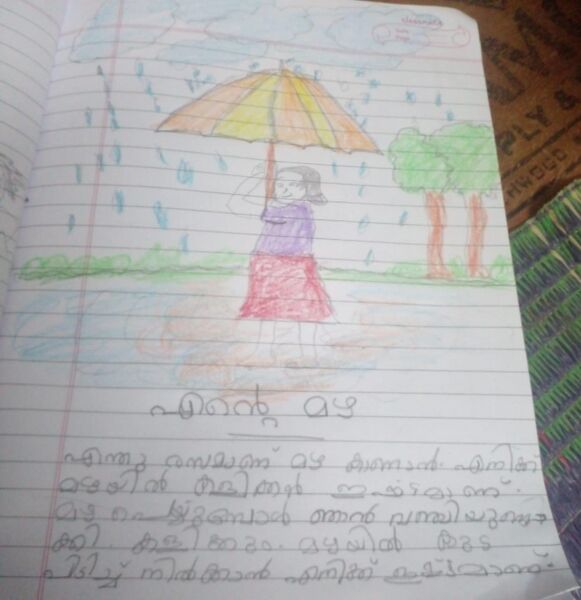 classmate
Date
Page
എന്റെ മഴ
എന്തു രസമാണ് മഴ കാണാൻ. എനിക്ക്
മഴയിൽ കളിക്കാൻ ഇഷ്ടമാണ്.
മഴ പെയ്യുമ്പോൾ ഞാൻ വഞ്ചിയുണ്ടാ
ക്കി കളിക്കും. മഴയിൽ കുട
പിടിച്ച് നിൽക്കാൻ എനിക്ക് ഇഷ്ടമാണ്.
PLY &